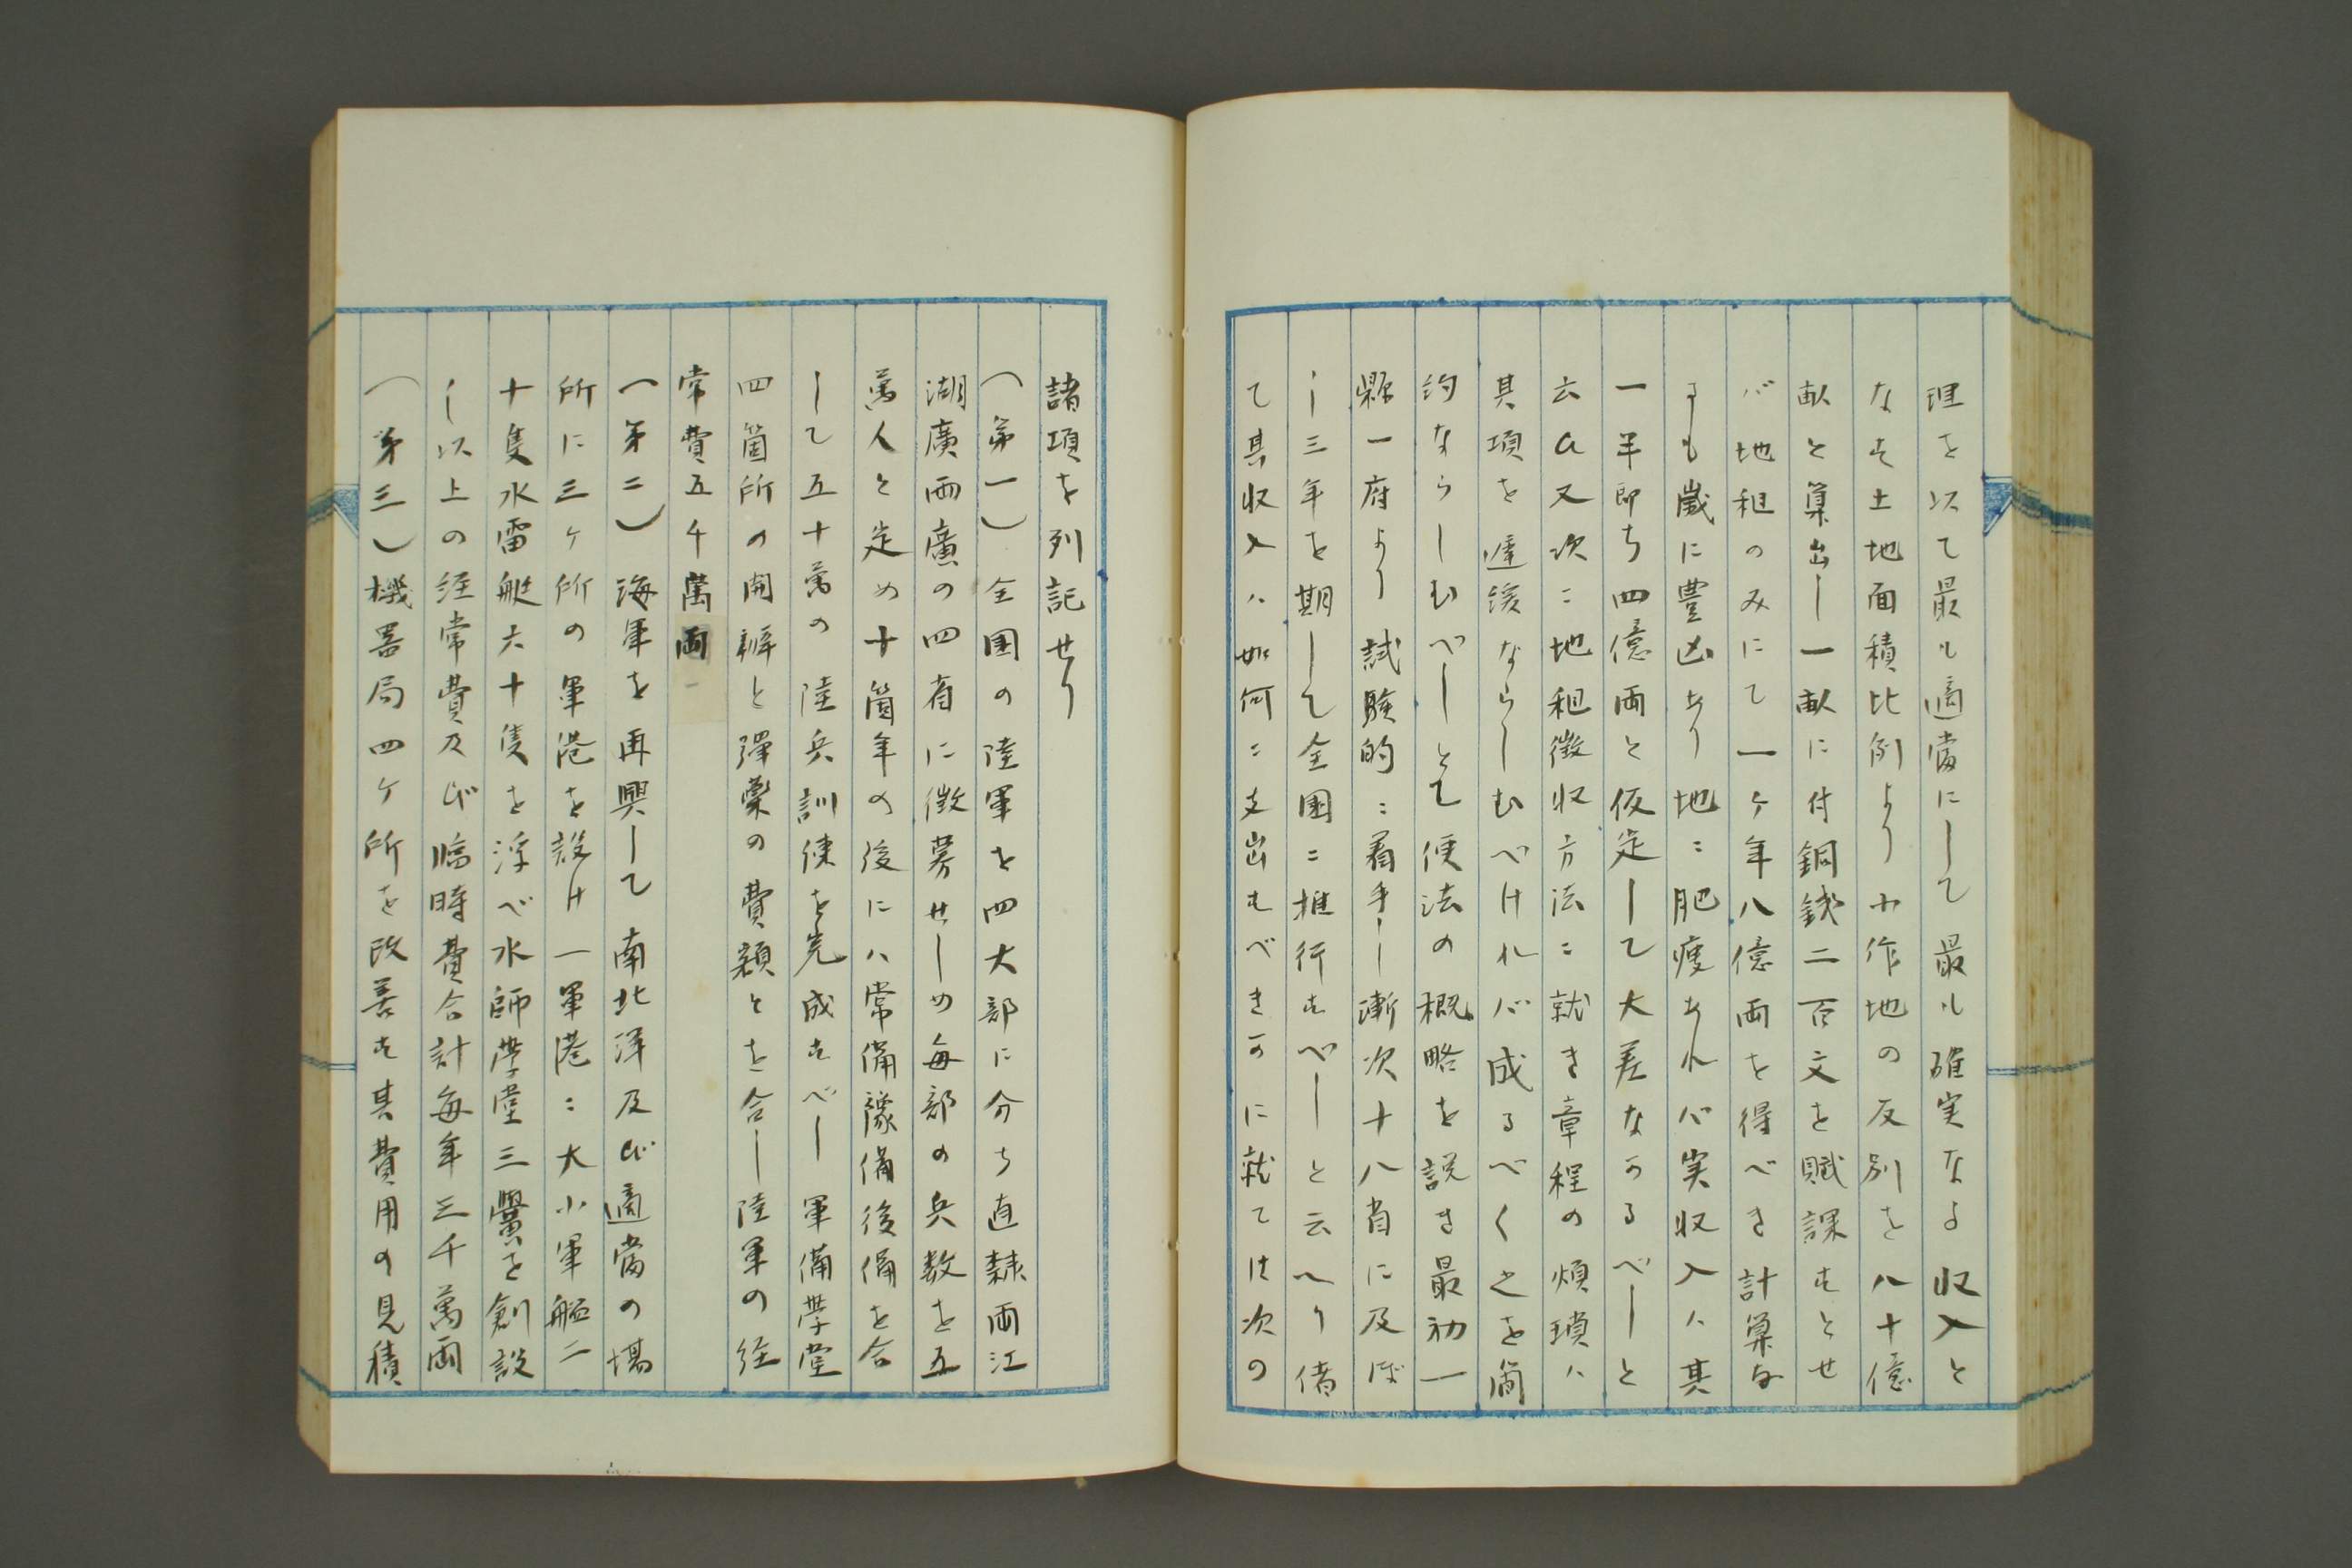 理を以て最も適當にして最も確実なる収入と
なす土地面積比例より小作地の反別を八十億
畝と算出し一畝に付銅銭二百文を賦課すとせ
バ地租のみにて一ヶ年八億両を得べき計算な
るも歳に豊凶あり地ニ肥痩あれバ実収入ハ其
一半即ち四億両と仮定して大差なかるべしと
云ひ又次ニ地租徴収方法ニ就き章程の煩瑣ハ
其項を遅緩ならしむべけれバ成るべく之を簡
約ならしむべしとて便法の概略を説き最初一
縣一府より試験的ニ着手し漸次十八省に及ぼ
し三年を期して全国ニ推行すべしと云へり偖
て其収入ハ如何ニ支出すべきかに就ては次の
諸項を列記せり
(第一)全国の陸軍を四大部に分ち直隷両江
湖廣両廣の四省に徴募せしめ毎部の兵数を五
萬人と定め十箇年の後にハ常備豫備後備を合
して五十萬の陸兵訓練を完成すべし軍備学堂
四箇所の開辦と弾薬の費額とを合し陸軍の経
常費五千萬両
(第二)海軍を再興して南北洋及び適當の場
所に三ヶ所の軍港を設け一軍港ニ大小軍艦二
十隻水雷艇六十隻を浮べ水師學堂三黌を創設
し以上の経常費及び臨時費合計毎年三千萬両
(第三)機器局四ヶ所を改善す其費用の見積